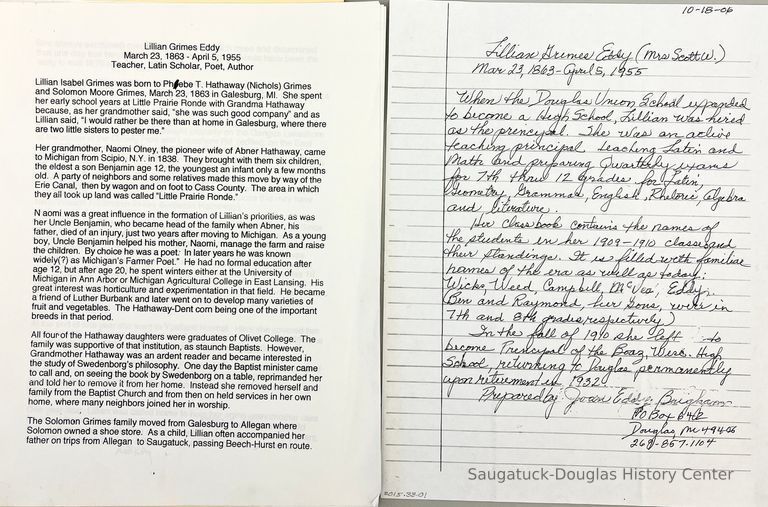 Lillian Grimes Eddy
March 23, 1863 - April 5, 1955
Teacher, Latin Scholar, Poet, Author
Lillian Isabel Grimes was born to Phebe T. Hathaway (Nichols) Grimes
and Solomon Moore Grimes, March 23, 1863 in Galesburg, MI. She spent
her early school years at Little Prairie Ronde with Grandma Hathaway
because, as her grandmother said, "she was such good company" and as
Lillian said, "I would rather be there than at home in Galesburg, where there
are two little sisters to pester me."
Her grandmother, Naomi Olney, the pioneer wife of Abner Hathaway, came
to Michigan from Scipio, N.Y. in 1838. They brought with them six children,
the eldest a son Benjamin age 12, the youngest an infant only a few months
old. A party of neighbors and some relatives made this move by way of the
Erie Canal, then by wagon and on foot to Cass County. The area in which
they all took up land was called "Little Prairie Ronde."
N aomi was a great influence in the formation of Lillian's priorities, as was
her Uncle Benjamin, who became head of the family when Abner, his
father, died of an injury, just two years after moving to Michigan. As a young
boy, Uncle Benjamin helped his mother, Naomi, manage the farm and raise
the children. By choice he was a poet. In later years he was known
widely(?) as Michigan's Farmer Poet." He had no formal education after
age 12, but after age 20, he spent winters either at the University of
Michigan in Ann Arbor or Michigan Agricultural College in East Lansing. His
great interest was horticulture and experimentation in that field. He became
a friend of Luther Burbank and later went on to develop many varieties of
fruit and vegetables. The Hathaway-Dent corn being one of the important
breeds in that period.
All four of the Hathaway daughters were graduates of Olivet College. The
family was supportive of that institution, as staunch Baptists. However,
Grandmother Hathaway was an ardent reader and became interested in
the study of Swedenborg's philosophy. One day the Baptist minister came
to call and, on seeing the book by Swedenborg on a table, reprimanded her
and told her to remove it from her home. Instead she removed herself and
family from the Baptist Church and from then on held services in her own
home, where many neighbors joined her in worship.
The Solomon Grimes family moved from Galesburg to Allegan where
Solomon owned a shoe store. As a child, Lillian often accompanied her
father on trips from Allegan to Saugatuck, passing Beech-Hurst en route.
10-18-06
Lillian Grimes Eddy (Mrs Scott W.)
Mar 23, 1863 - April 5, 1955
When the Douglas Union School expanded
to become a High School, Lillian was hired
as the principal. She was an active
teaching principal teaching Latin and
Math and preparing Quarterly exams
for 7th thru 12 grades for Latin,
Geometry, Grammar, English, Rhetoric, Algebra
and literature.
Her Class book contains the names of
the students in her 1909-1910 classes and
their standings. It is filled with familiar
names of the era as well as today:
Wicks, Weed, Campbell, McVea, Eddy,
(Ben and Raymond, her sons, were in
7th and 8th grades, respectively)
In the fall of 1910 she left to
become Principal of the Boaz, Wisc. High
School, returning to Douglas permanently
upon retirement in 1932.
Prepared by Joan Eddy Brigham
PO Box 646
Douglas, MI 49406
269-857-1104
2015.33.01
Saugatuck-Douglas History Center